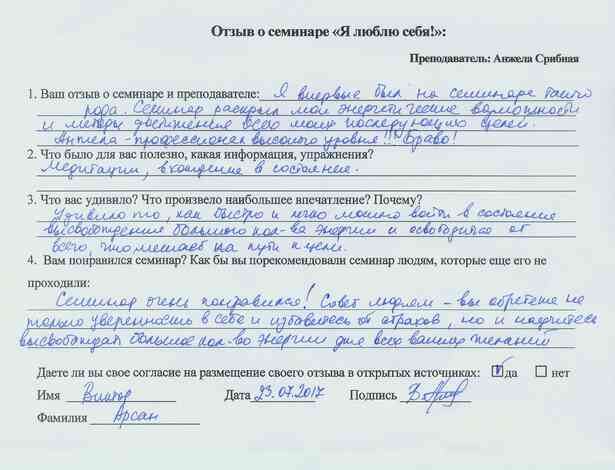 Отзыв о семинаре «Я люблю себя!»:
Преподаватель: Анжела Срибная
1. Ваш отзыв о семинаре и преподавателе: Я впервые был на семинаре такого
рода. Семинар раскрыл мои энергетические возможности
и методы достижения всех моих последующих целей.
Анжела - профессионал высокого уровня!!! Браво!
2. Что было для вас полезно, какая информация, упражнения?
Медитации, вхождение в состояние.
3. Что вас удивило? Что произвело наибольшее впечатление? Почему?
Удивило то, как быстро и легко можно войти в состояние
высвобождения большого кол-ва энергии и освободиться от
всего, что мешает на пути к цели.
4. Вам понравился семинар? Как бы вы порекомендовали семинар людям, которые еще его не
проходили:
Семинар очень понравился! Совет людям - вы обретете не
только уверенность в себе и избавитесь от страхов, но и научитесь
высвобождать большое кол-во энергии для всех ваших желаний
Даете ли вы свое согласие на размещение своего отзыва в открытых источниках: да нет
Имя Виктор Дата 23.07.2017 Подпись
Фамилия Арсан